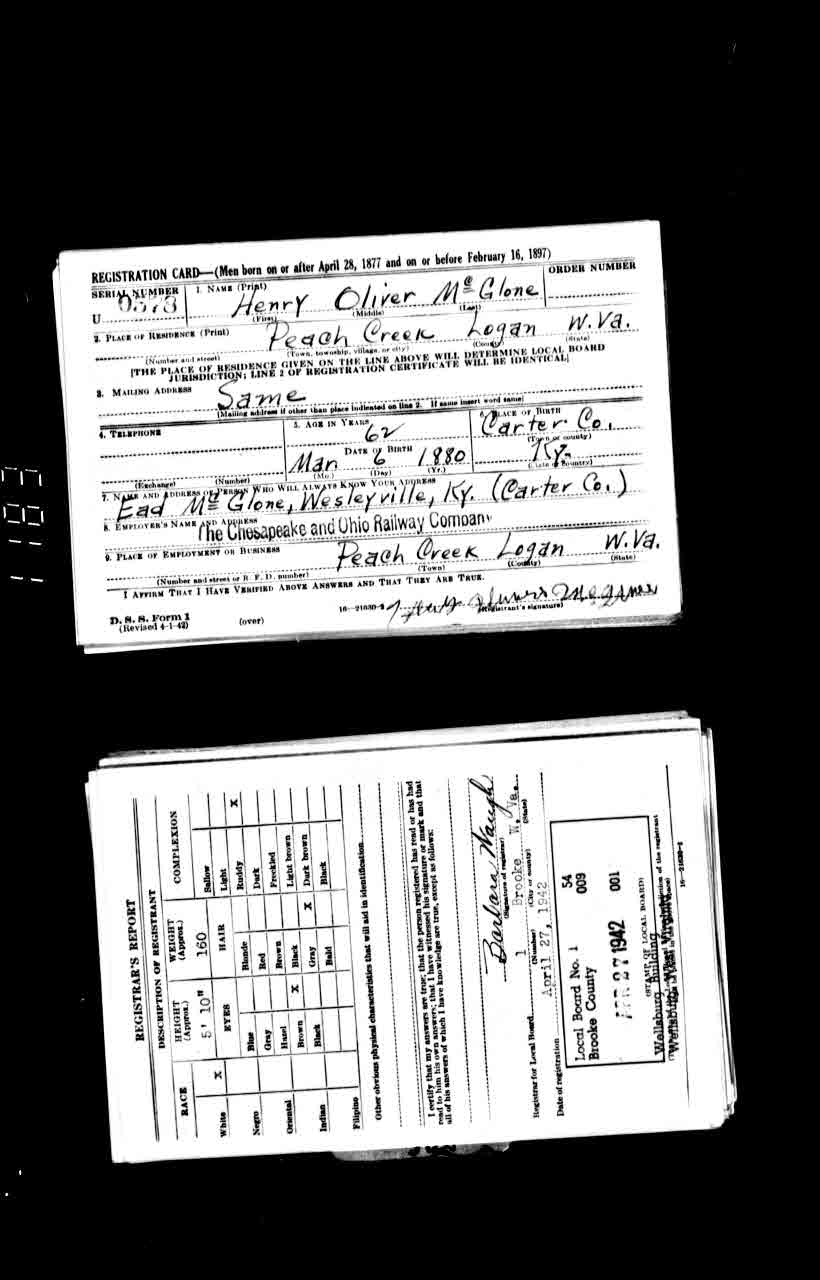 REGISTRATION CARD—(Men born on or after April 28, 1877 and on or before February 16, 1897)
SERIAL NUMBER 1. NAME (Print) ORDER NUMBER
U 0573 Henry Oliver McGlone
(First) (Middle) (Last)
2. PLACE OF RESIDENCE (Print)
Peach Creek Logan W.Va.
(Number and street) (Town, township, village, or city) (County) (State)
[THE PLACE OF RESIDENCE GIVEN ON THE LINE ABOVE WILL DETERMINE LOCAL BOARD
JURISDICTION; LINE 2 OF REGISTRATION CERTIFICATE WILL BE IDENTICAL]
3. MAILING ADDRESS
Same
[Mailing address if other than place indicated on line 2. If same insert word same]
4. TELEPHONE 5. AGE IN YEARS 6. PLACE OF BIRTH
62 Carter Co.
(Town or county)
DATE OF BIRTH
Mar 6 1880 Ky.
(Exchange) (Number) (Mo.) (Day) (Yr.) (State or country)
7. NAME AND ADDRESS OF PERSON WHO WILL ALWAYS KNOW YOUR ADDRESS
Ead McGlone, Wesleyville, Ky. (Carter Co.)
8. EMPLOYER'S NAME AND ADDRESS
The Chesapeake and Ohio Railway Company
9. PLACE OF EMPLOYMENT OR BUSINESS
Peach Creek Logan W.Va.
(Number and street or R. F. D. number) (Town) (County) (State)
I AFFIRM THAT I HAVE VERIFIED ABOVE ANSWERS AND THAT THEY ARE TRUE.
D. S. S. Form 1
(Revised 4-1-42) (over) 16—21630-2 (Registrant's signature)
REGISTRAR'S REPORT
DESCRIPTION OF REGISTRANT
RACE HEIGHT (Approx.) WEIGHT (Approx.) COMPLEXION
5' 10" 160 Sallow
White X EYES HAIR Light
Blue Blonde Ruddy X
Negro Gray Red Dark
Hazel Brown Freckled
Oriental Brown X Black Light brown
Indian Black Gray X Dark brown
Bald Black
Filipino
Other obvious physical characteristics that will aid in identification
I certify that my answers are true; that the person registered has read or has had
read to him his own answers; that I have witnessed his signature or mark and that
all of his answers of which I have knowledge are true, except as follows:
Barbara Waugh
(Signature of registrar)
Registrar for Local Board 1 Brooke W. Va.
(Number) (City or county) (State)
Date of registration April 27, 1942
Local Board No. 1 54
Brooke County 009
APR 27 1942 001
(STAMP OF LOCAL BOARD)
Wellsburg Building
Wellsburg, West Virginia
16—21630-2